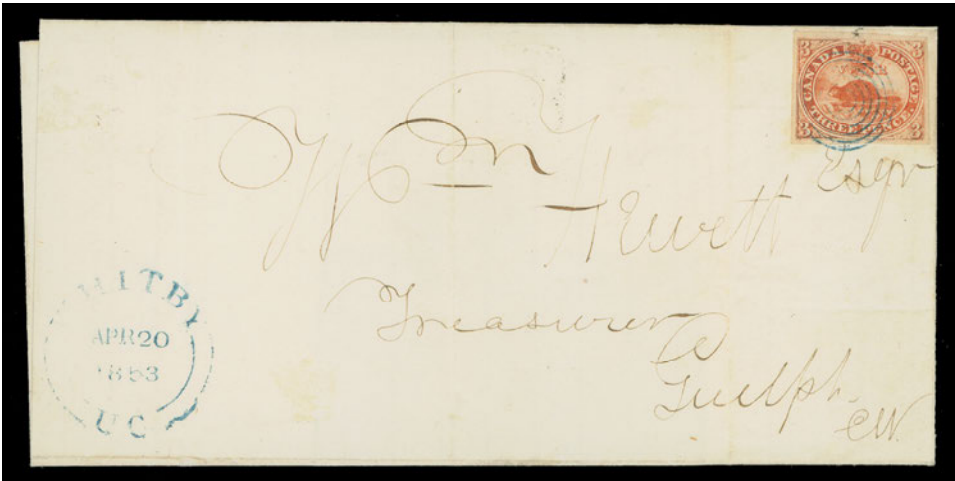 3 3
CANADA POSTAGE
THREE PENCE
3 3
Wm Hewett Esqr
Treasurer
Guelph
CW.
WHITBY
APR 20
1853
UC